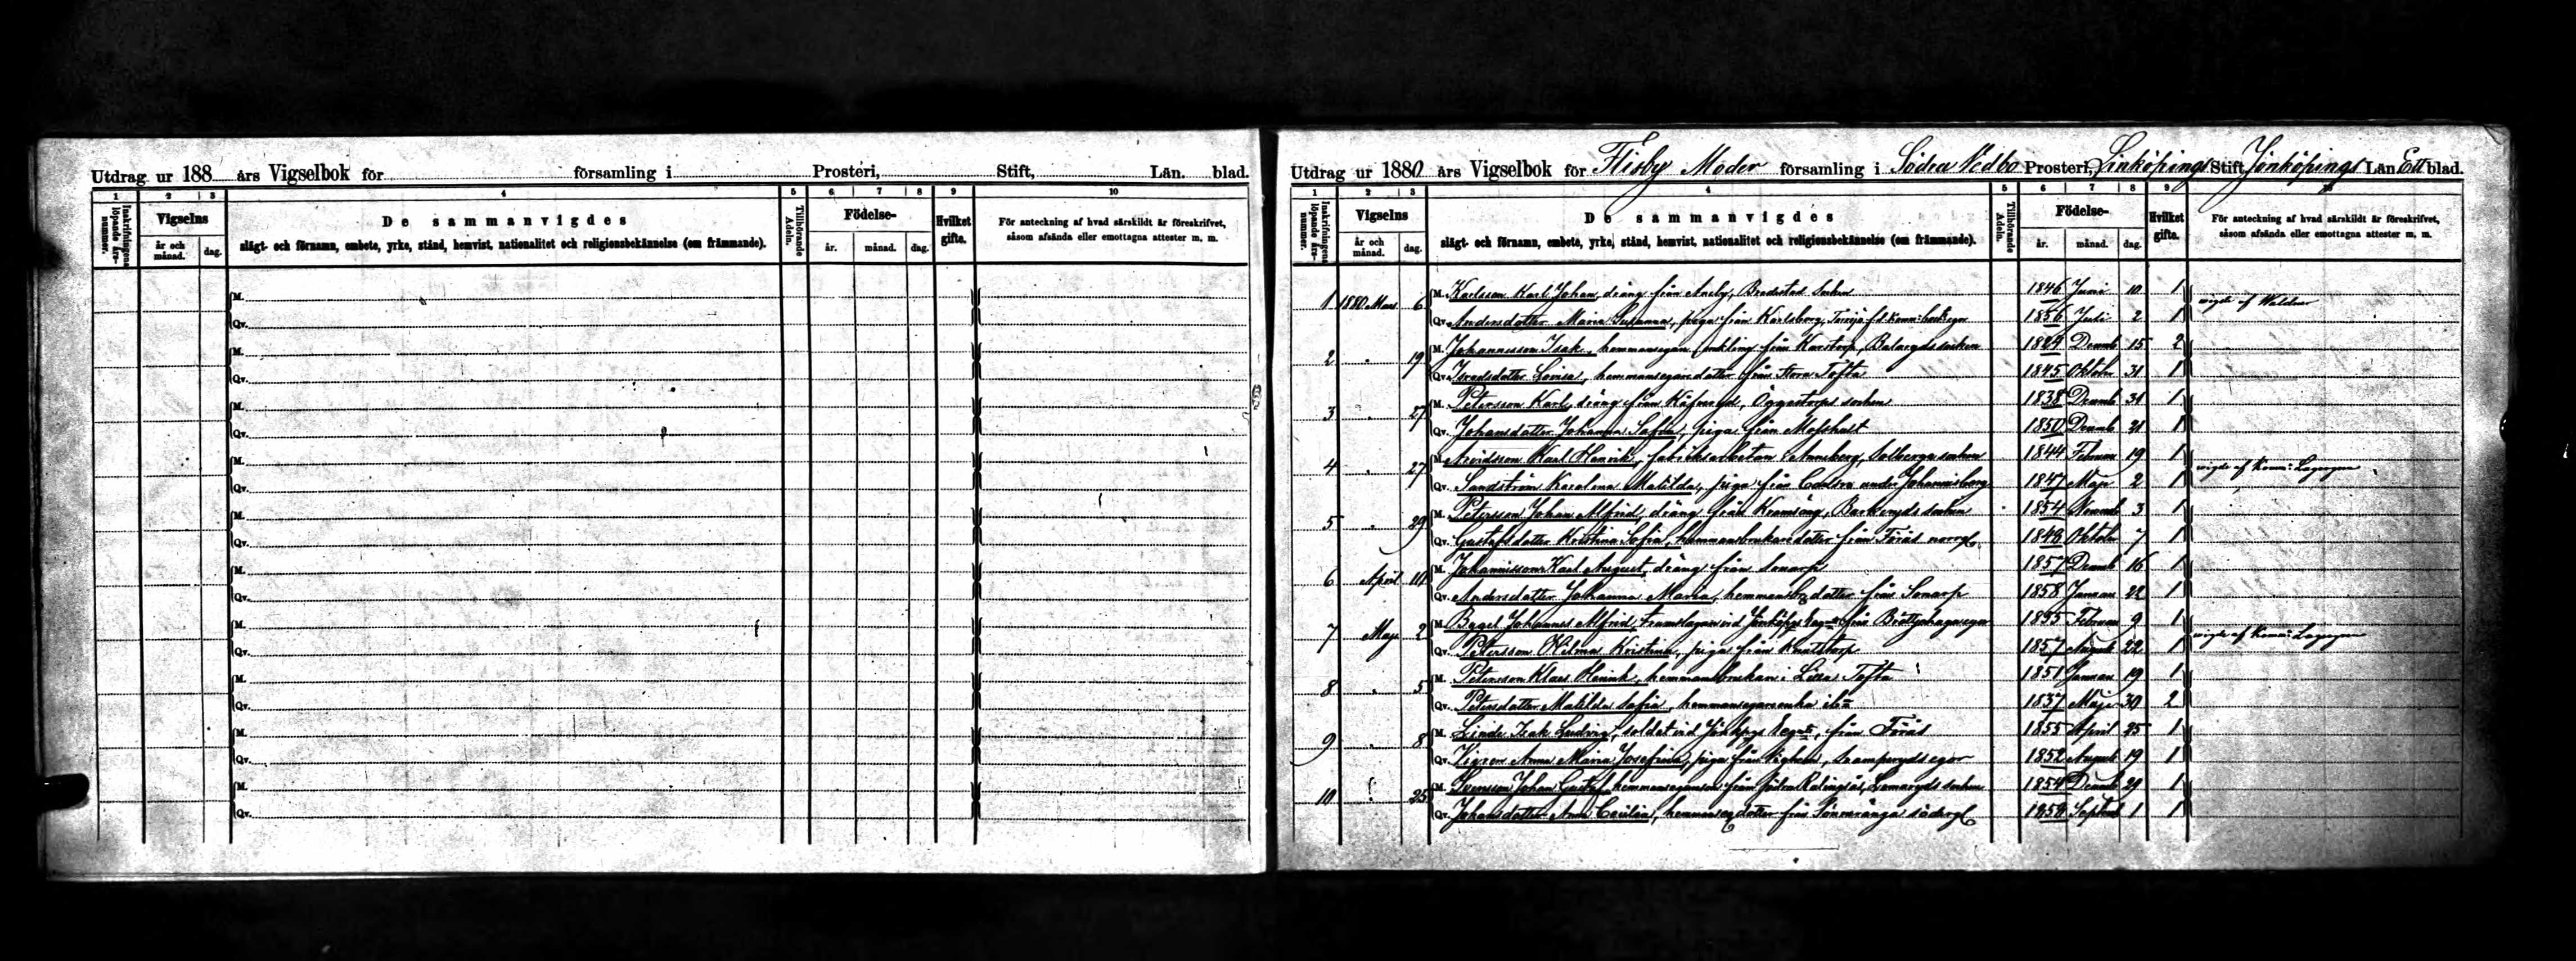 Utdrag ur 188 års Vigselbok för församling i Prosteri, Stift, Län. blad.
1 2 3 4 5 6 7 8 9 10
Inskrifningens löpande års-nummer.
Vigselns
år och månad. dag.
De sammanvigdes
slägt- och förnamn, embete, yrke, stånd, hemvist, nationalitet och religionsbekännelse (om främmande).
Tillhörande Adeln.
Födelse-
år. månad. dag.
Hvilket gifte.
För anteckning af hvad särskildt är föreskrifvet,
såsom afsända eller emottagna attester m. m.
M.
Qv.
M.
Qv.
M.
Qv.
M.
Qv.
M.
Qv.
M.
Qv.
M.
Qv.
M.
Qv.
M.
Qv.
M.
Qv.
Utdrag ur 1880 års Vigselbok för Flisby Moder församling i Södra Vedbo Prosteri, Linköpings Stift, Jönköpings Län Ett blad.
1 2 3 4 5 6 7 8 9 10
Inskrifningens löpande års-nummer.
Vigselns
år och månad. dag.
De sammanvigdes
slägt- och förnamn, embete, yrke, stånd, hemvist, nationalitet och religionsbekännelse (om främmande).
Tillhörande Adeln.
Födelse-
år. månad. dag.
Hvilket gifte.
För anteckning af hvad särskildt är föreskrifvet,
såsom afsända eller emottagna attester m. m.
1 1880 Mars 6 M. Karlsson Karl Johan, dräng från Aneby, Bredestad Socken 1846 Juni 10 1
Qv. Andersdotter Maria Susanna, piga från Karlsborg, 1856 Juli 2 1 vigde af
2 19 M. Johannesson Isak, hemmansegare enkling från Karstorp, Bälaryds socken 15 2
Qv. Israelsdotter Lovisa, hemmansegaredotter från Stora Tofta 1845 Oktober 31 1
3 27 M. Petersson Karl, dräng från Öggestorps socken 1838 Decemb 31 1
Qv. Johansdotter Johanna Sofia, piga från 1850 Decemb 21 1
4 27 M. Arvidsson Karl Henrik, fabriksarbetare Anneberg, Solberga socken 1844 Februari 19 1
Qv. Sandström Karolina Matilda, piga från under Johannisberg 1847 Maj 2 1 vigde af Komm: Lagergren
5 29 M. Petersson Johan Alfred, dräng från Barkeryds socken 1854 Novemb 3 1
Qv. Gustafsdotter Kristina Sofia, hemmansbrukaredotter från Förås norrg. 1849 Oktober 7 1
6 April M. Johannesson Karl August, dräng från Sonarp 1857 Decemb 16 1
Qv. Andersdotter Johanna Maria, hemmanseg dotter från Sonarp 1858 Januari 22 1
7 Maj 2 M. Johannes Alfred, trumslagare vid Jönköpgs Reg:te från Februari 9 1
Qv. Petersson Hilma Kristina, piga från Knutstorp 1857 Augusti 22 1 vigde af Komm: Lagergren
8 5 M. Petersson Klaes Henrik, hemmansbrukare i Lilla Tofta 1851 Januari 19 1
Qv. Petersdotter Matilda Sofia, hemmansegareenka ib:m 1837 Maj 30 2
9 8 M. Linde Isak Ludvig, soldat vid Jönkpgs Reg:te, från Förås 1855 April 25 1
Qv. Anna Maria Josefina, piga från 1852 Augusti 19 1
10 25 M. Svensson Johan Gustaf, hemmansegareson från Södra Lommaryds socken 1854 Decemb 29 1
Qv. Johansdotter Anna Cecilia, hemmanseg dotter från söderg. Septemb 1 1